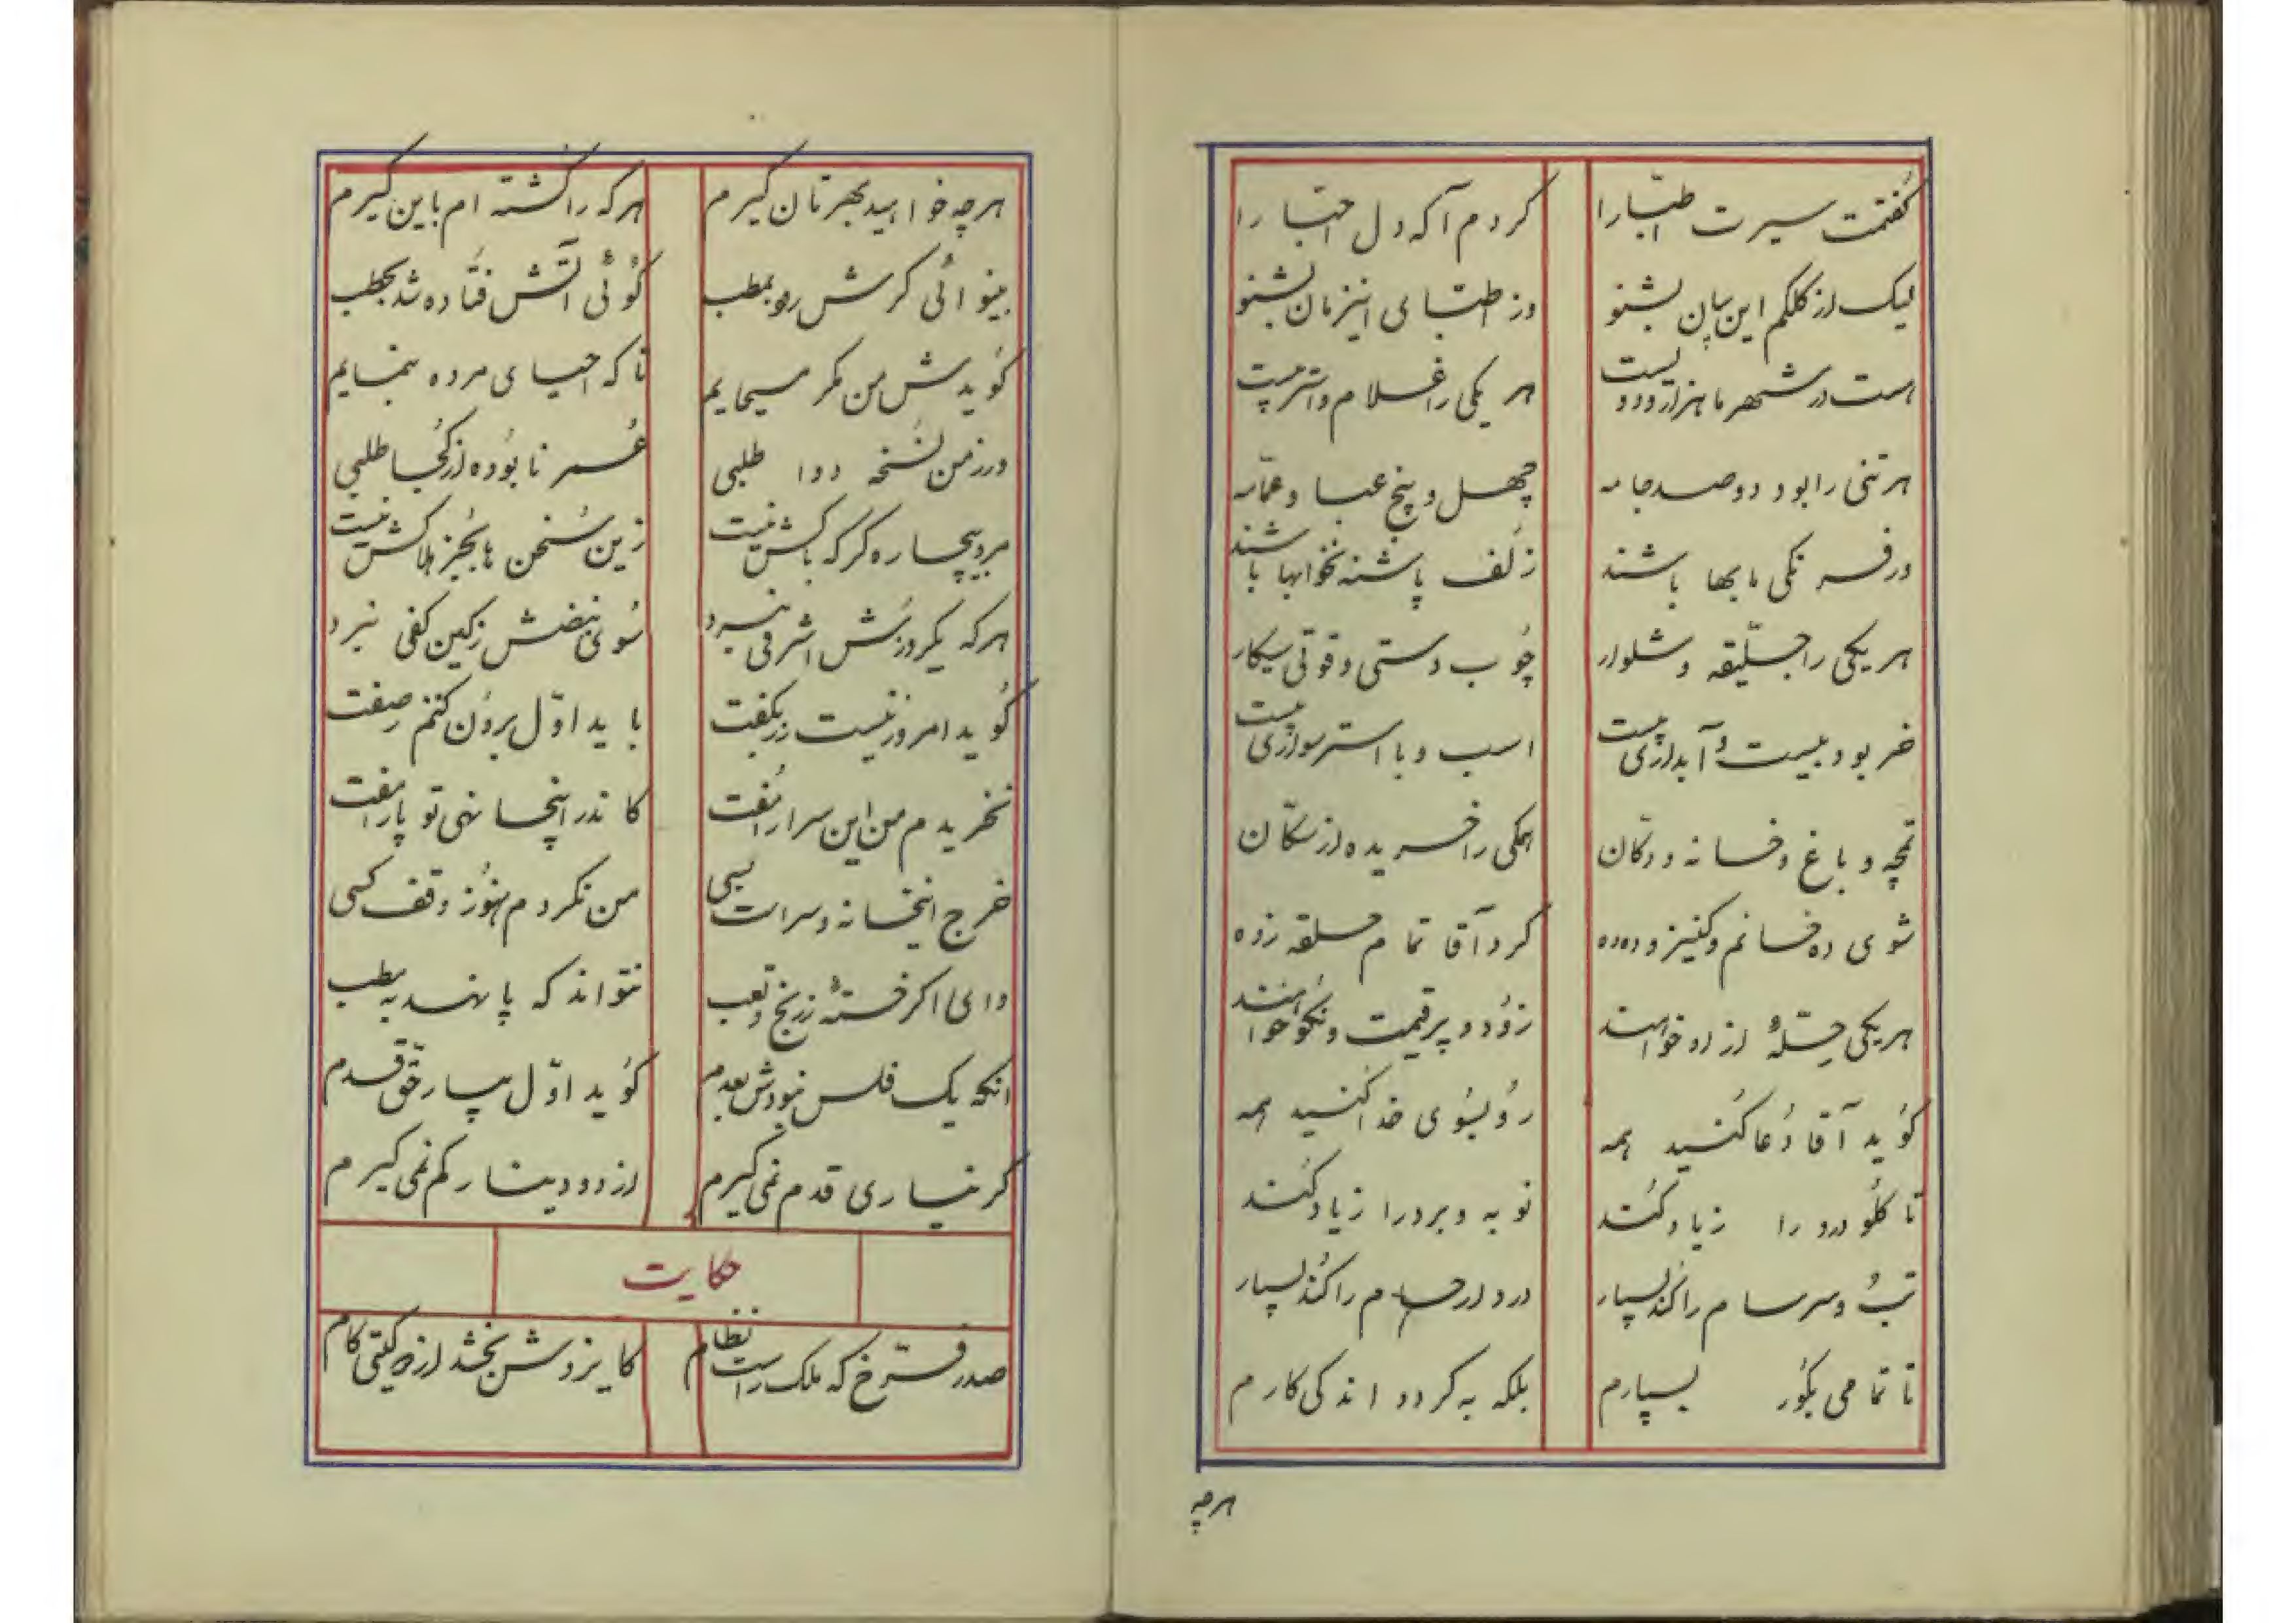 گفتمت سیرت اطبّا را کردم آگه دل احبّا را
لیک از کلکم این بیان بشنو وز اطبّای این زمان بشنو
هست در شهر ما هزار و دویست هر یکی را غلام و استر بیست
هر تنی را بود دوصد جامه چهل و پنج عبا و عمّامه
در فرنگی مابها باشند زلف پاشنه نخوابها باشند
هر یکی را جلیقه و شلوار چوب دستی و قوتی سیکار
خر بود بیست و آبداری بیست اسب و با استر سواری بیست
قمچه و باغ و خانه و دکان همکی را خریده از سکّان
شوی ده خانم و کنیز و دده کرد آقا تمام حلقه زده
هر یکی حلّهٔ از او خواهند زود و پر قیمت و نکو خواهند
گوید آقا دُعا کنید همه رو بسوی خدا کنید همه
تا کلو درد را زیاد کند نوبه و برد را زیاد کند
تب و سرسام را کند بسیار درد ارحام را کند بسیار
تا تمامی بگور بسپارم بلکه به کردد اندکی کارم
هرچه
هرچه خواهید بهرتان کیرم هر که را کشته ام باین کیرم
بینوائی کرش ره بمطب کوئی آتش فتاده شد بحطب
کویدش من مکر مسیحایم تا که احیای مرده بنمایم
ور ز من نسخه دوا طلبی عمر نابوده از کجا طلبی
مرد بیچاره کر که باکش نیست زین سخن ها بجز هلاکش نیست
هر که یکروزش اشرفی نبرد سوی نبضش زکین کفی نبرد
کوید امروز نیست زر بکفت باید اوّل برون کنم ز صفت
نخریدم من این سرا را مفت کاندر اینجا نهی تو پا را مفت
خرج اینخانه و سراست بسی من نکردم هنوز وقف کسی
وای اکر خستهٔ ز رنج و تعب نتواند که پا نهد به مطب
انکه یک فلس نبودش بعدم کوید اوّل بیار حقّ قدم
کر نیاری قدم نمی کیرم از دو دینار کم نمی کیرم
حکایت
صدر فرّخ که ملک راست نظام کایزدش بخشد از دو کیتی کام